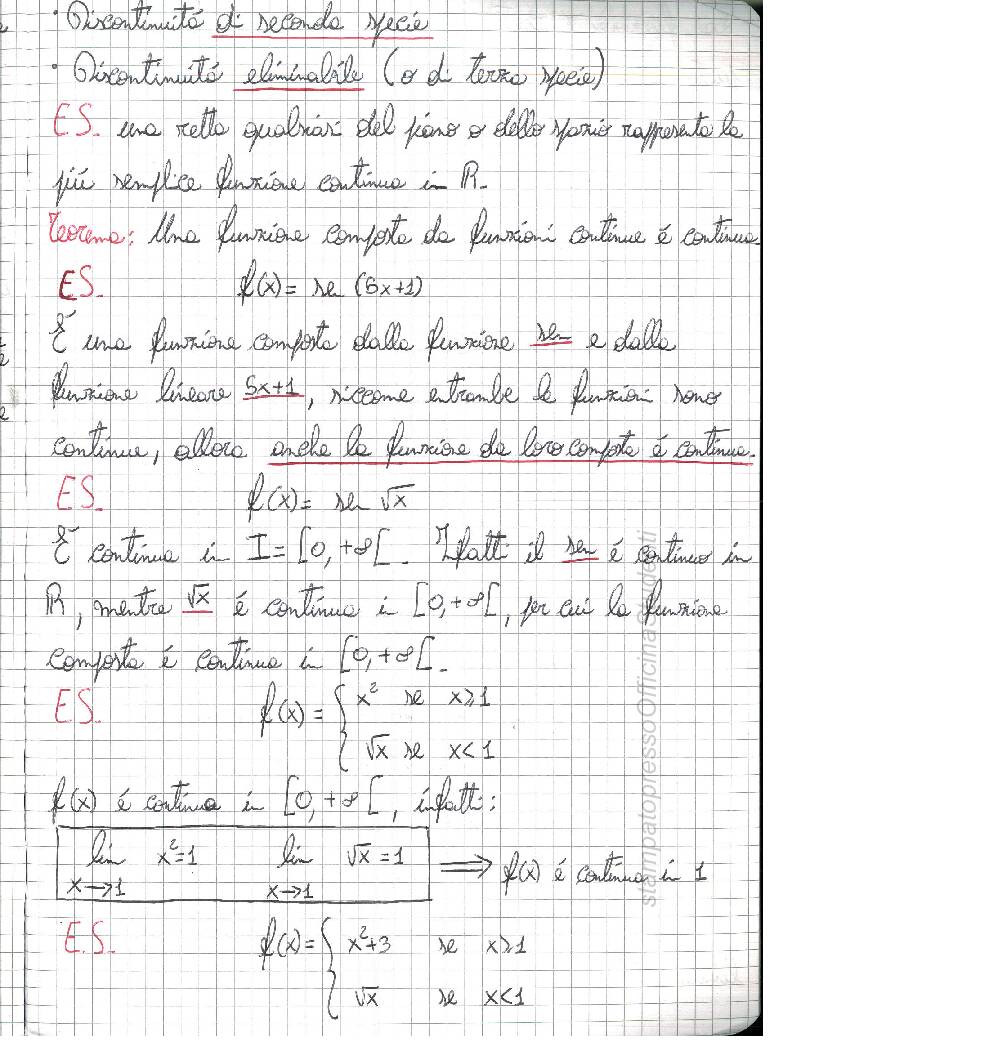 · Discontinuitá di seconda specie
· Discontinuitá eliminabile (o di terza specie)
ES. una retta qualsiasi del piano o dello spazio rappresenta la
piú semplice funzione continua in ℝ.
Teorema: Una funzione composta da funzioni continue é continua.
ES. f(x) = sen (5x+1)
É una funzione composta dalla funzione sen e dalla
funzione lineare 5x+1, siccome entrambe le funzioni sono
continue, allora anche la funzione da loro composta é continua.
ES. f(x) = sen √x
É continua in I = [0, +∞[. Infatti il sen é continuo in
ℝ, mentre √x é continua in [0, +∞[, per cui la funzione
composta é continua in [0, +∞[.
ES. f(x) = { x² se x⩾1
√x se x<1
f(x) é continua in [0, +∞[, infatti:
lim x²=1 lim √x=1
x→1 x→1
⟹ f(x) é continua in 1
ES. f(x) = { x²+3 se x⩾1
√x se x<1
stampatopressoOfficinaStudenti